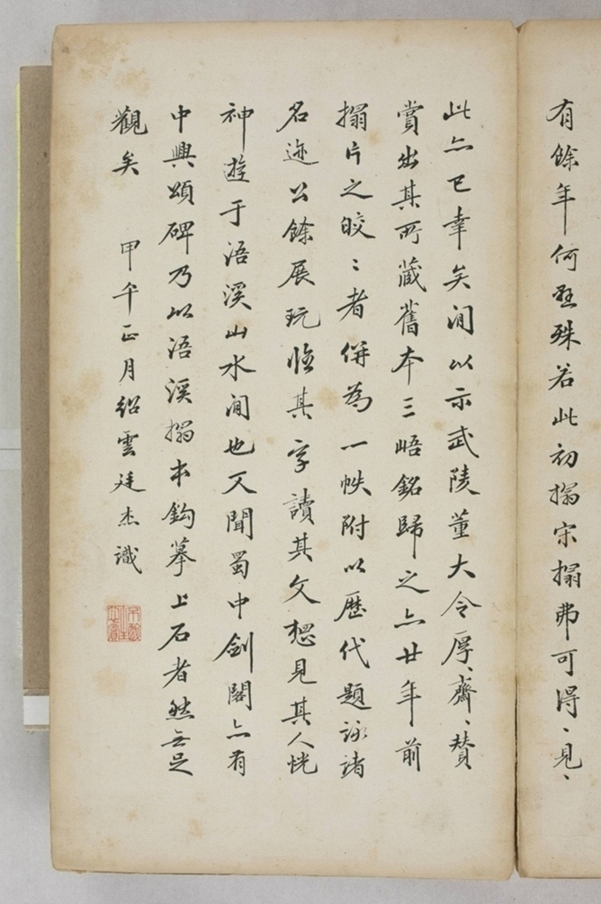 有餘年何亟殊若此初搨宋搨弗可得見
此亦已幸矣间以示武陵董大令厚齋贊
賞出其所藏舊本三峿銘歸之亦廿年前
搨片之皎〻者併為一帙附以歷代題詠諸
名迹公餘展玩臨其字讀其文想見其人恍
神遊于浯溪山水间也又聞蜀中劍閣亦有
中興頌碑乃以浯溪搨本鈎摹上石者然無足
觀矣 甲午正月紹雲廷杰識